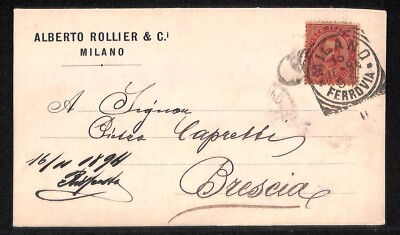 ALBERTO ROLLIER & C.i
MILANO
MILANO
FERROVIA
A Signor
Pietro Capretti
16/11 1894
Risposta
Brescia